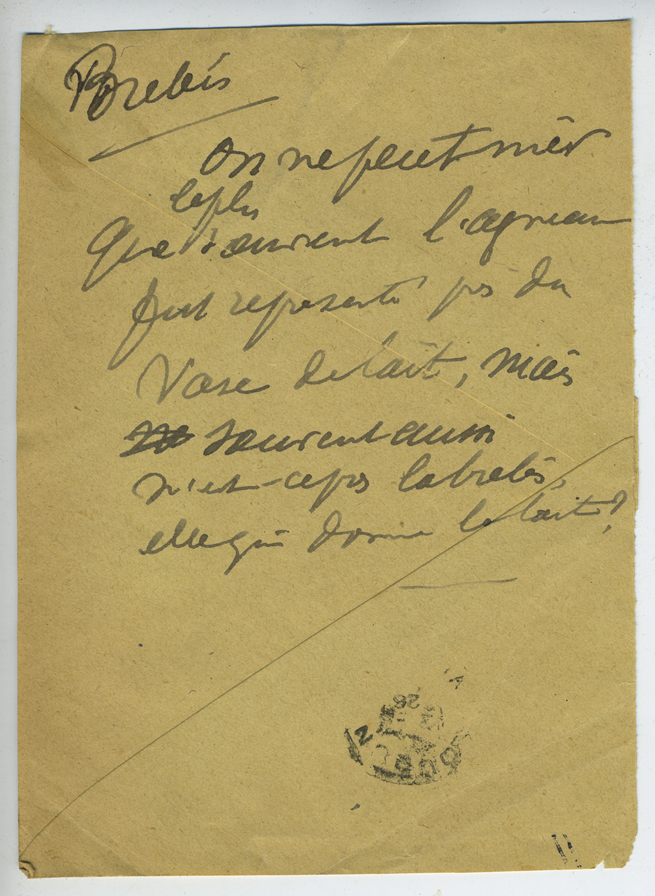 Brebis
On ne peut nier
le plus
Que souvent l'agneau
fut représenté près du
Vase de lait, mais
souvent aussi
n'est-ce pas la brebis,
elle qui donne le lait?